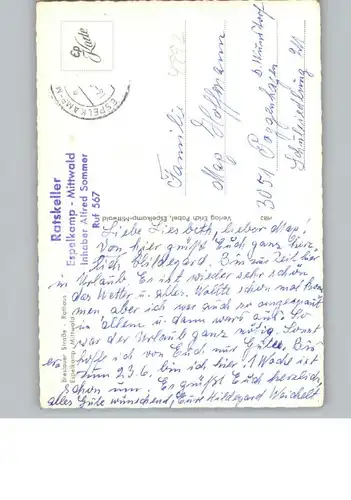 Ep
Karte
ESPELKAMP-M
Ratskeller
Espelkamp - Mittwald
Inhaber Alfred Sommer
Ruf 567
Breslauer Straße Rathaus
Espelkamp-Mittwald
Verlag Erich Pobel, Espelkamp-Mittwald
Familie
Max Hoffmann
3051 Poggenhagen
b. Wunstorf
Schulsiedlung 21
Liebe Liesbeth, lieber Max!
Von hier grüßt Euch ganz herz-
lich Hildegard. Bin zur Zeit hier
in Urlaub. Es ist wieder sehr schön
das Wetter u. alles. Wollte schon mal kom-
men aber ich war auch so ausgegault
in allem u. dann ward auch. So
war der Urlaub ganz nötig. Sonst
hoffe ich von Euch nur Gutes. Bin
zum 23.6. bin ich hier. 1 Woche ist
schon um. Es grüßt Euch herzlich,
alles Gute wünschend, Eure Hildegard Weichelt